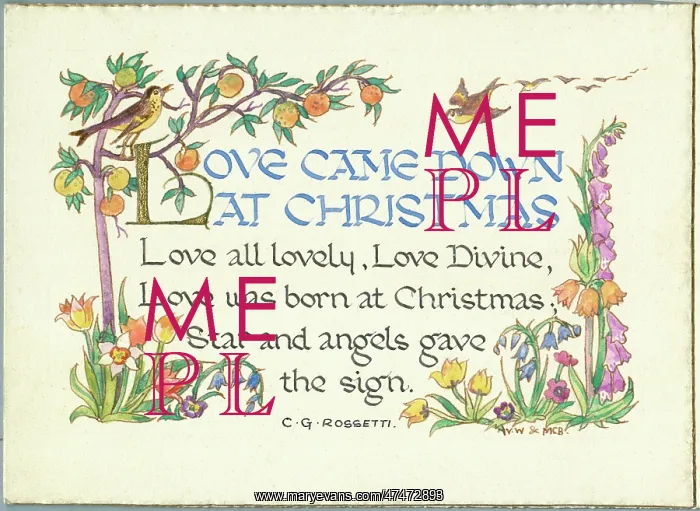 LOVE CAME DOWN
AT CHRISTMAS
Love all lovely, Love Divine,
Love was born at Christmas;
Star and angels gave
the sign.
C.G.ROSSETTI.
V.W & McB.
ME
PL
ME
PL
www.maryevans.com/47472893